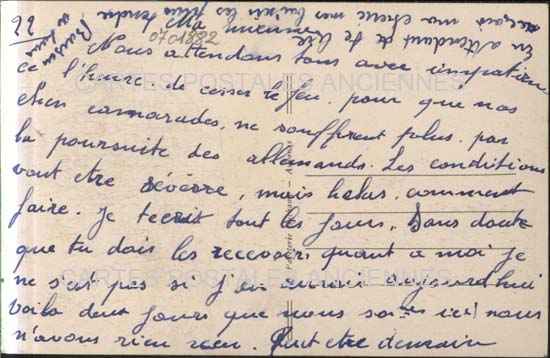 22
Ma mienne
0701882
Nous attendons tous avec impatience
l'heure de cesser le feu. pour que nos
chers camarades, ne souffrent plus. par
la poursuite des allemands. Les conditions
vont etre sévère, mais helas. comment
faire. Je tecrit tout les Jours, Sans doute
que tu dois les recevoir, quant a moi Je
ne s'ait pas si J'en aurai aujourd'hui
voila deux Jours que nous sommes ici nous
n'avons rien recu. Peut etre demain
En attendant de te lire
recois ma cherie mes baisers les plus tendres
Baisers
a tous
CARTES POSTALES ANCIENNES
CARTES POSTALES ANCIENNES